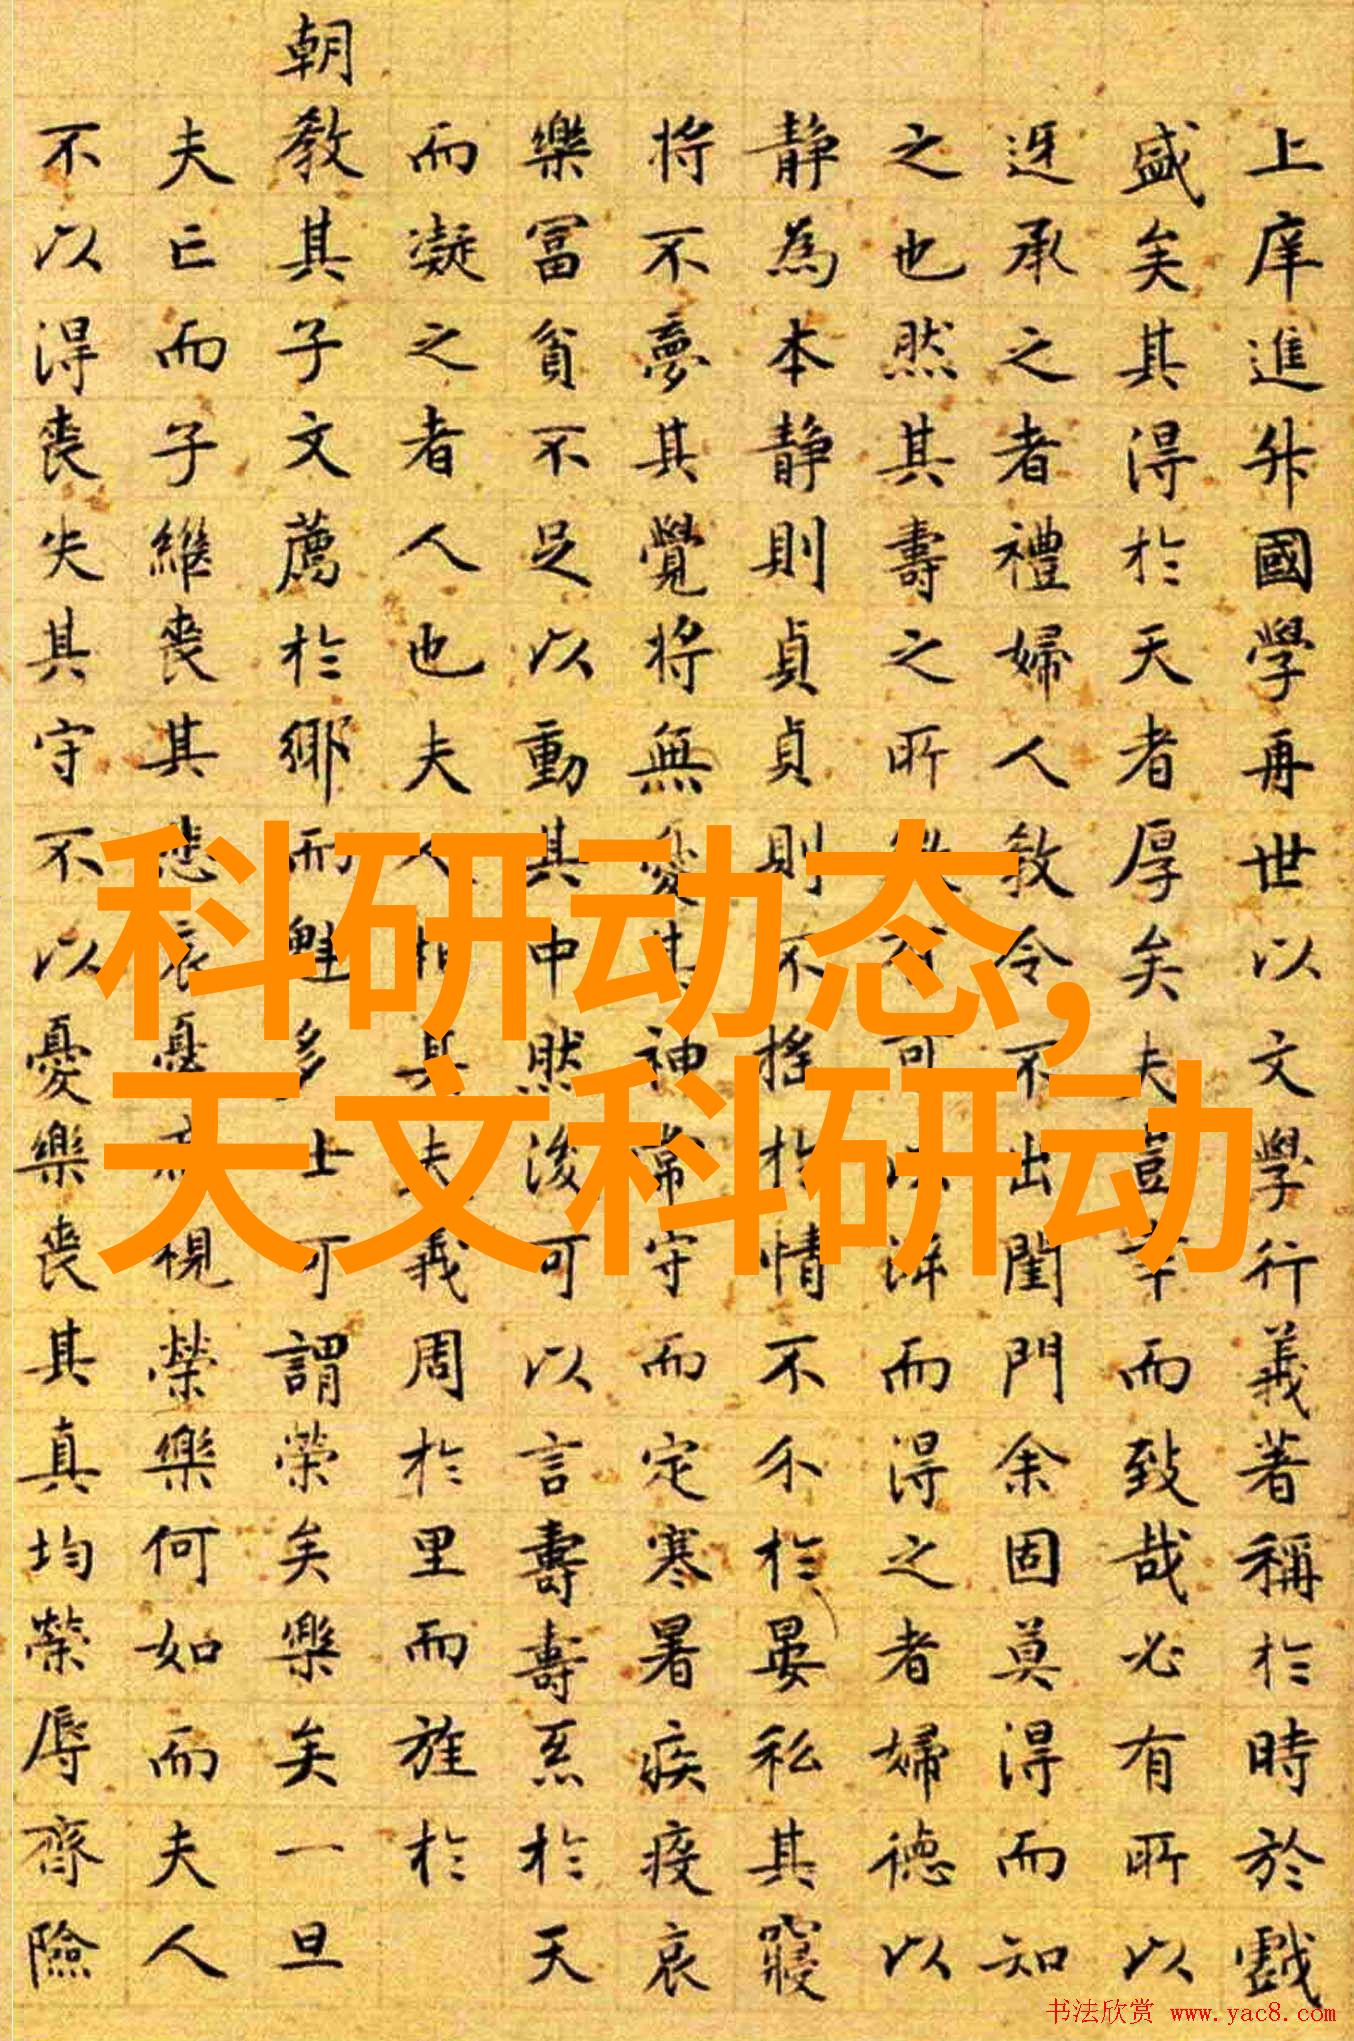 上庠進升國學再世以文學行義著稱於時於戲
盛矣其得於天者厚矣夫豈幸而致哉必有所以
迓承之者禮婦人教令不出閨門余固莫得而知
之也然其壽之所 可以 而得之者婦德以
静為本静則貞貞則不搖於情不 於晏私其寢
将不夢其覺将無憂其神常守而定寒暑疾疫哀
樂富貧不足以動其中然後可以言壽壽系於天
而凝之者人也夫人相其夫義周於里而旌於
朝教其子文薦於鄉而魁多士可謂榮矣樂矣一旦
夫亡而子繼喪其悲哀憂 視榮樂何如而夫人
不以得喪失其守不以憂樂喪其真均榮辱齊險
科研动态,
天文科研动
书法欣赏 www.yac8.com